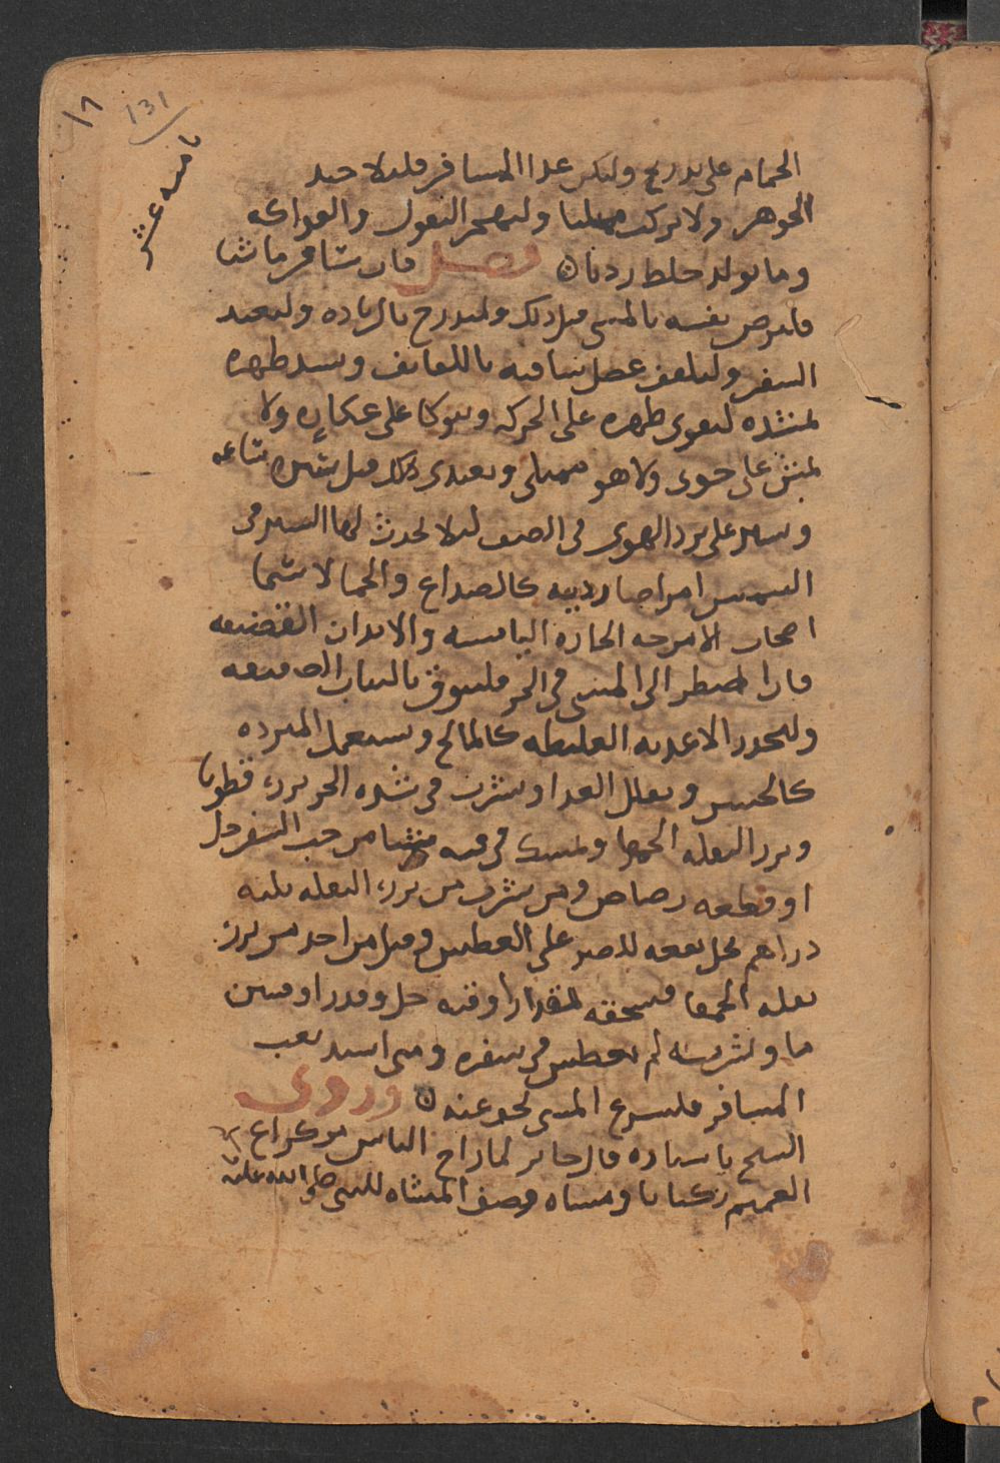 ١٨
131
ثامنه عشر
الحمام على تدريج وليكن غدا المسافر قليلا جيد
الجوهر ولا يركب ممتليا وليهجر البقول والفواكه
وما يولد خلط رديان فصل فان سافر ماشيا
فليرض نفسه بالمشى قبل ذلك وليتدرج بالزياده وليعتد
السفر وليلفف عضل ساقيه باللفايف ويشد ظهره
لمشده ليقوى ظهره على الحركه ويتوكا على عكاز ولا
يمش على خوى ولا هو ممتلى ويغتدى ذلك قبل سيره ساعه
ويسير على برد الهوى فى الصيف ليلا يحدث لها السير فى
الشمس امراضا رديه كالصداع والحما لا سيما
اصحاب الامزجه الحاره اليابسه والابدان القضيفه
فاذا اضطر الى المشى فى الحر فليتوق بالثياب الصفيقه
وليحذر الاغديه الغليظه كالمالح ويستعمل المبرده
كالخس ويقلل الغدا ويشرب فى شده الحر بزر قطونا
وبزر البقله الحمقا ويمسك فى فيه شيا من حب السفرجل
او قطعه رصاص ومن يشرب من بزر البقله ثلثه
دراهم بخل نفعه للصبر على العطش وقيل من اخد من بزر
بقله الحمقا فسحقه بمقدار اوقيه خل وقدر اوقيتين
ما وشربه لم يعطش فى سفره ومتى اشتد تعب
المسافر فليسرع المشى يخف عنه ن وروى
الشيخ باسناده قال جابر لما راح الناس من كراع
الغميم ركبانا ومشاه فصف المشاه للنبى صلى الله عليه